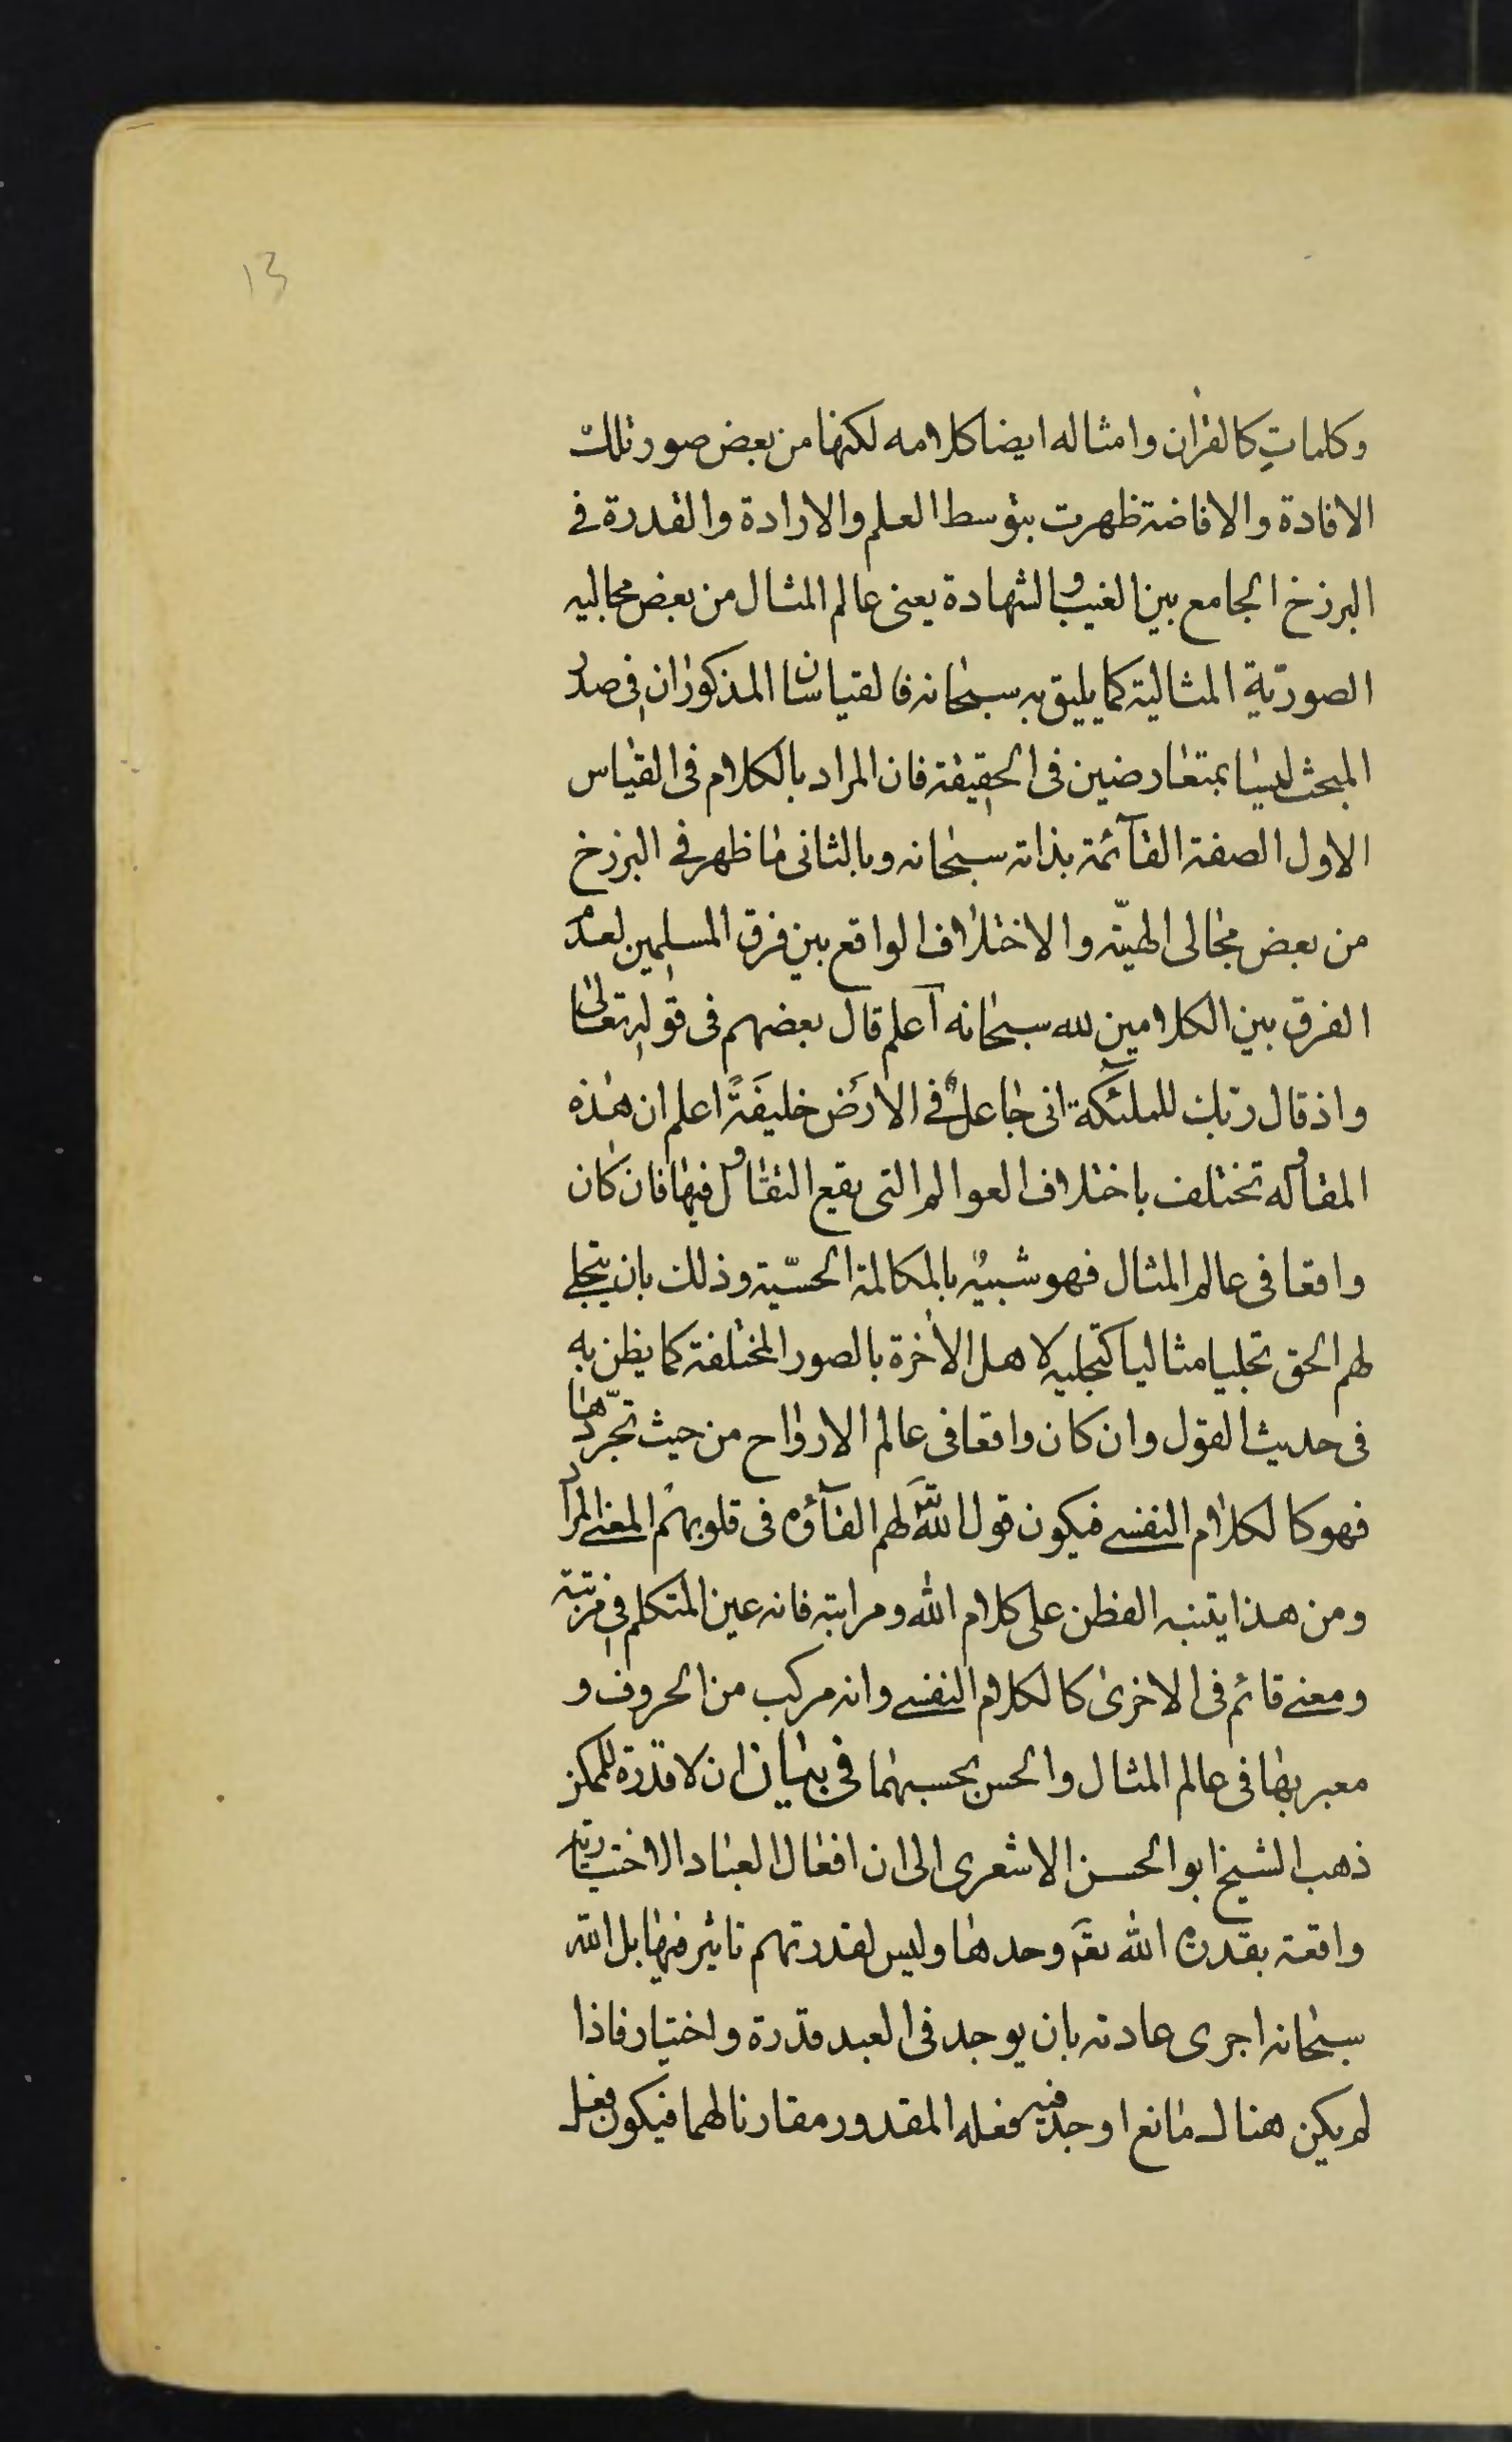 13
وكلماتٍ كالقرآن وامثاله ايضا كلامه لكنها من بعض صور تلك
الافادة والافاضة ظهرت بتوسط العلم والارادة والقدرة فى
البرزخ الجامع بين الغيب والشهادة يعنى عالم المثال من بعض مجاليه
الصورية المثالية كما يليق به سبحانه فالقياسان المذكوران فى صدر
المبحث ليسا بمتعارضين فى الحقيقة فان المراد بالكلام فى القياس
الاول الصفة القآئمة بذاته سبحانه وبالثانى ما ظهر فى البرزخ
من بعض مجالى الهيّة والاختلاف الواقع بين فرق المسلمين لعدم
الفرق بين الكلامين لله سبحانه اعلم قال بعضهم فى قوله تعالى
واذ قال ربك للملئكة انى جاعلٌ فى الارَض خليفَةً اعلم ان هذه
المقاوله تختلف باختلاف العوالم التى يقع التقاول فيها فان كان
واقعا فى عالم المثال فهو شبيهٌ بالمكالمة الحسّية وذلك بان يتجلى
لهم الحق تجليا مثاليا كتجليه لاهل الآخرة بالصور المختلفة كما يظن به
فى حديث القول وان كان واقعا فى عالم الارواح من حيث تجرّدها
فهو كالكلام النفسى فيكون قول الله لهم القآؤه فى قلوبهم المعنى المراد
ومن هذا يتنبه الفطن على كلام الله ومراتبه فانه عين المتكلم فى مرتبة
ومعنى قائم فى الاخرى كالكلام النفسى وانه مركب من الحروف و
معبر بها فى عالم المثال والحس بحسبهما فى بيان ان لا قدرة للممكن
ذهب الشيخ ابو الحسن الاشعرى الى ان افعال العباد الاختيارية
واقعة بقدرة الله تعَ وحدها وليس لقدرتهم تاثير فيها بل الله
سبحانه اجرى عادته بان يوجد فى العبد قدرة واختيار فاذا
لم يكن هناك مانع اوجد فيه فعله المقدور مقارنا لهما فيكون فعل